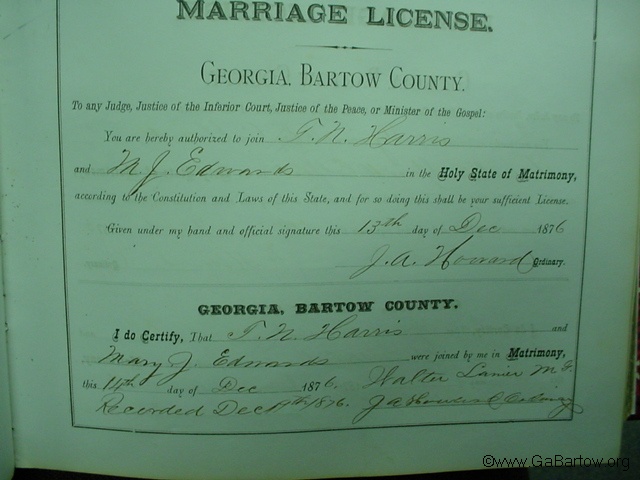 MARRIAGE LICENSE.
GEORGIA, BARTOW COUNTY.
To any Judge, Justice of the Inferior Court, Justice of the Peace, or Minister of the Gospel:
You are hereby authorized to join T. N. Harris
and M. J. Edwards in the Holy State of Matrimony,
according to the Constitution and Laws of this State, and for so doing this shall be your sufficient License.
Given under my hand and official signature this 13th day of Dec 1876
J. A. Howard Ordinary.
GEORGIA, BARTOW COUNTY.
I do Certify, That T. N. Harris and
Mary J. Edwards were joined by me in Matrimony,
this 14th day of Dec 1876. Walter Lanier M G
Recorded Dec 1876. J A Howard Ordinary
©www.GaBartow.org